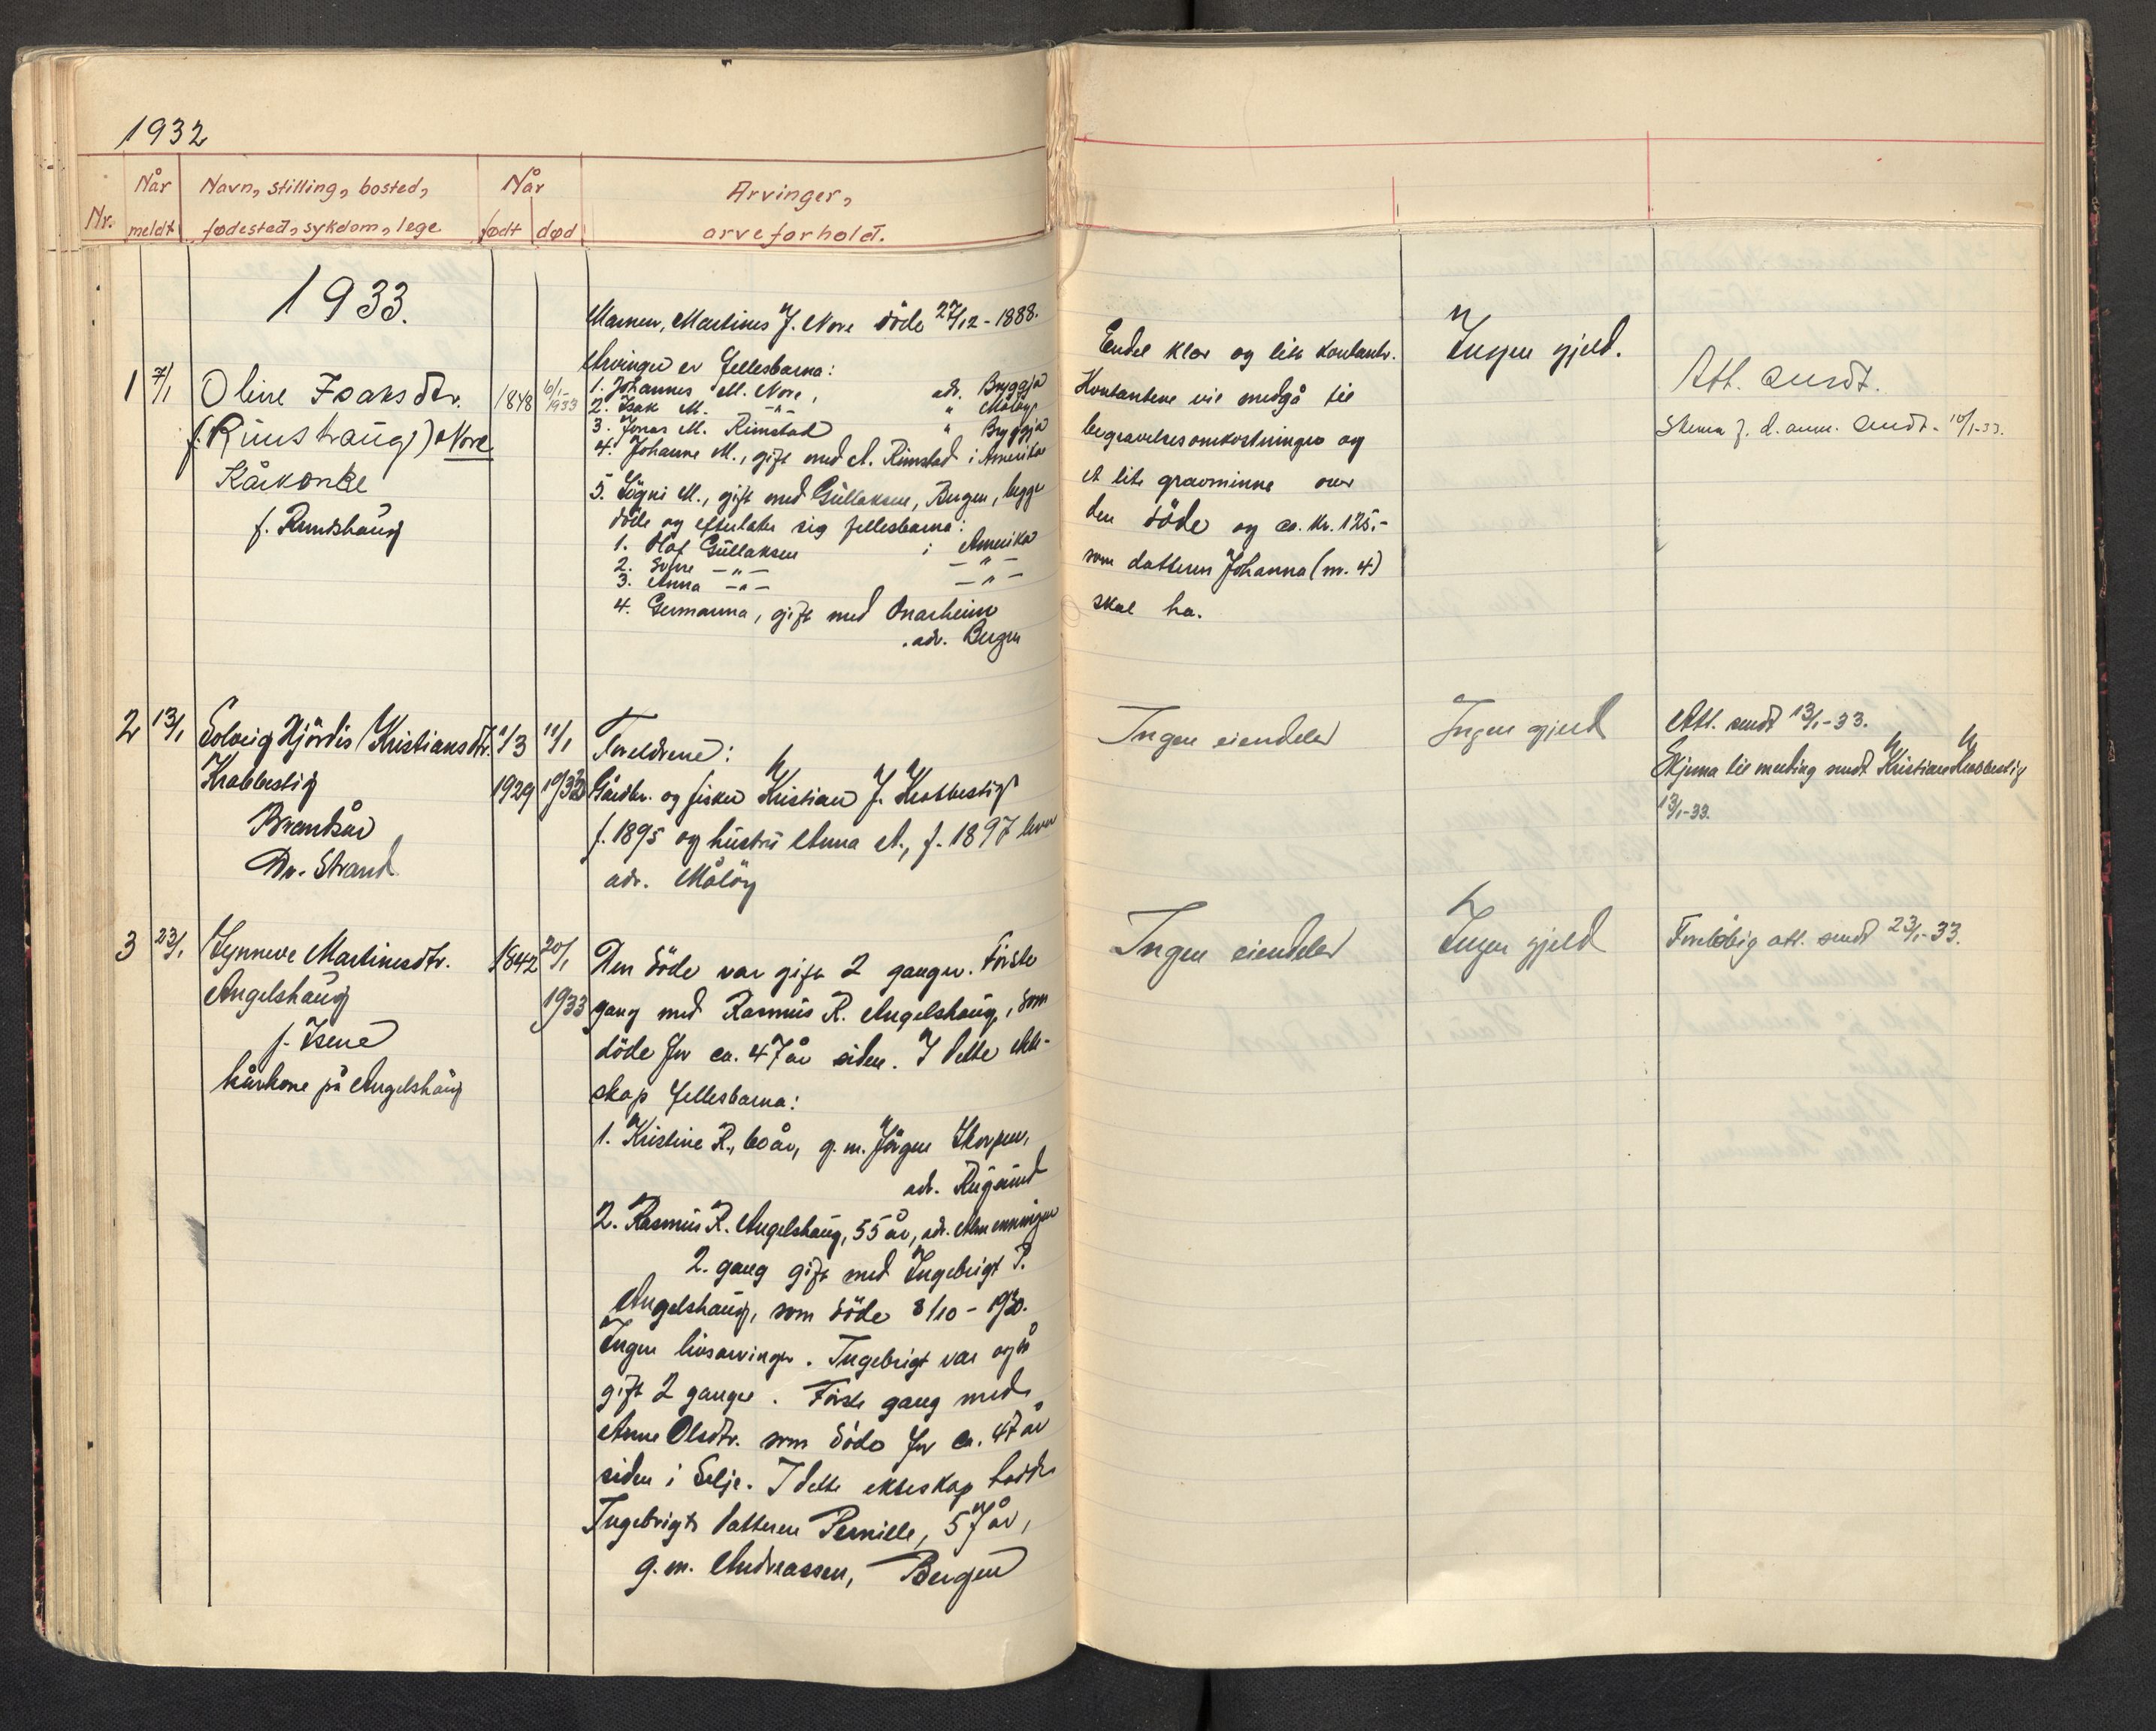 1932
Nr.
Når meldt
Navn, stilling, bosted,
fødested, sykdom, lege
Når
født død
Arvinger,
arveforhold.
1933.
1 7/1 Oline Isaksdtr. 1848 6/1- 1933
(f. Rimshaug) Nore
Kårkone
f. Rimshaug
Mannen, Martinus J. Nore döde 27/12-1888.
Arvinger er fellesbarna:
1. Johannes M. Nore, adr. Bryggja
2. Isak M. -"- " Måløy
3. Jonas M. Rimstad " Bryggja
4. Johanne M., gift med A. Rimstad i Amerika
5. Sögni M., gift med Gullaksen, Bergen, begge
döde og efterlater sig fellesbarna:
1. Olaf Gullaksen i Amerika
2. -"- -"-
3. Anna -"- -"-
4. Germanna, gift med Onarheim
adr. Bergen
Endel klær og litt kontanter.
Kontantene vil medgå til
begravelsesomkostninger og
et lite gravminne over
den döde og ca. kr. 125,-
som datteren Johanna (nr. 4)
skal ha.
Ingen gjeld.
Att. sendt.
Skema f. d. ann. sendt. 10/1-33.
2 13/1 Solveig Hjördis Kristiansdtr. 1/3 11/1
Krabbestig 1929 1933
Brandsår
Dr. Strand
Foreldrene:
Gårdbr. og fisker Kristian J. Krabbestig
f. 1895 og hustru Anna A., f. 1897 lever
adr. Målöy
Ingen eiendeler
Ingen gjeld
Att. sendt 13/1-33.
Skjema til melding sendt Kristian Krabbestig
13/1-33.
3 23/1 Synneve Martinusdtr. 1842 20/1
Angelshaug 1933
f. Isene
kårkone på Angelshaug
Den döde var gift 2 ganger. Förste
gang med Rasmus R. Angelshaug, som
döde for ca. 47 år siden. I dette ekte-
skap fellesbarna:
1. Kristine R., 60 år, g.m. Jörgen Skorpen,
adr. Rugsund
2. Rasmus R. Angelshaug, 55 år, adr. Almenningen
2. gang gift med Ingebrigt P.
Angelshaug, som döde 8/10-1930.
Ingen livsarvinger. Ingebrigt var også
gift 2 ganger. Förste gang med
Anne Olsdtr. som döde for ca. 47 år
siden i Selje. I dette ekteskap hadde
Ingebrigt datteren Pernille, 57 år,
g.m. Andreassen, Bergen
Ingen eiendeler
Ingen gjeld
Foreløbig att. sendt 23/1-33.